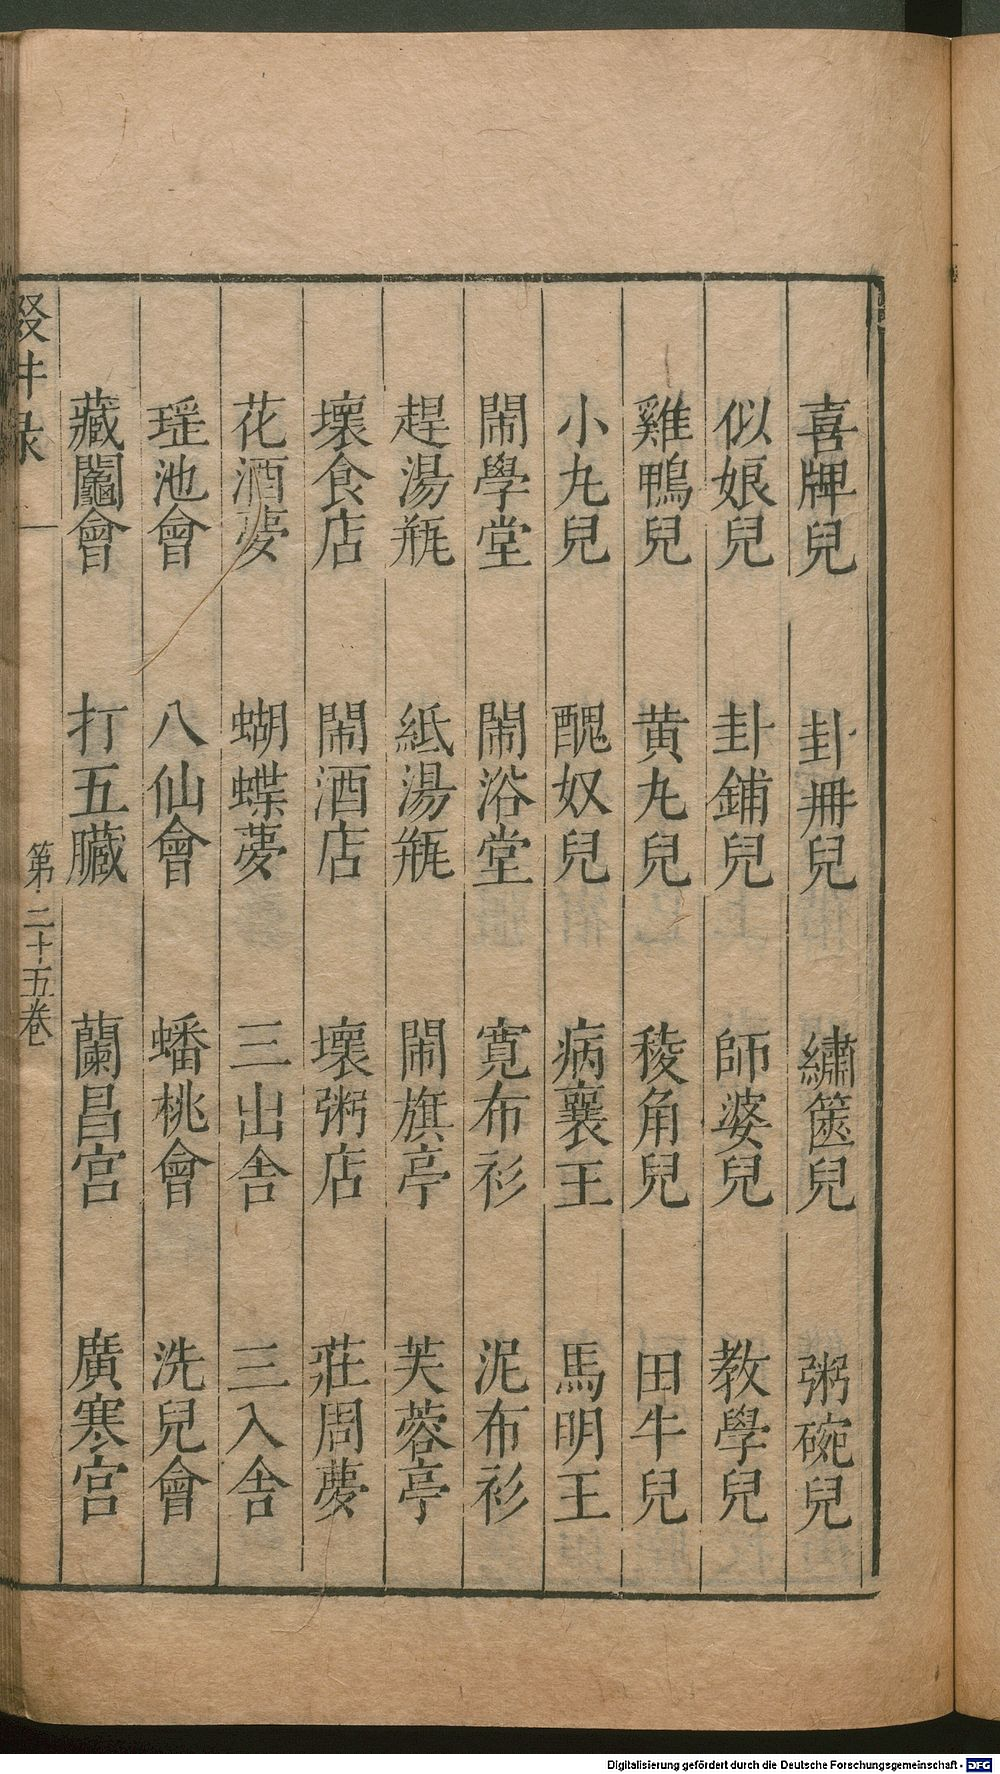 喜牌兒　卦冊兒　繡篋兒　粥碗兒
似娘兒　卦鋪兒　師婆兒　教學兒
雞鴨兒　黄丸兒　稜角兒　田牛兒
小丸兒　醜奴兒　病襄王　馬明王
閙學堂　閙浴堂　寬布衫　泥布衫
趕湯瓶　紙湯瓶　閙旗亭　芙蓉亭
壞食店　閙酒店　壞粥店　莊周夢
花酒夢　蝴蝶夢　三出舍　三入舍
瑶池會　八仙會　蟠桃會　洗兒會
藏鬮會　打五臟　蘭昌宮　廣寒宮
第二十五卷
Digitalisierung gefördert durch die Deutsche Forschungsgemeinschaft - DFG